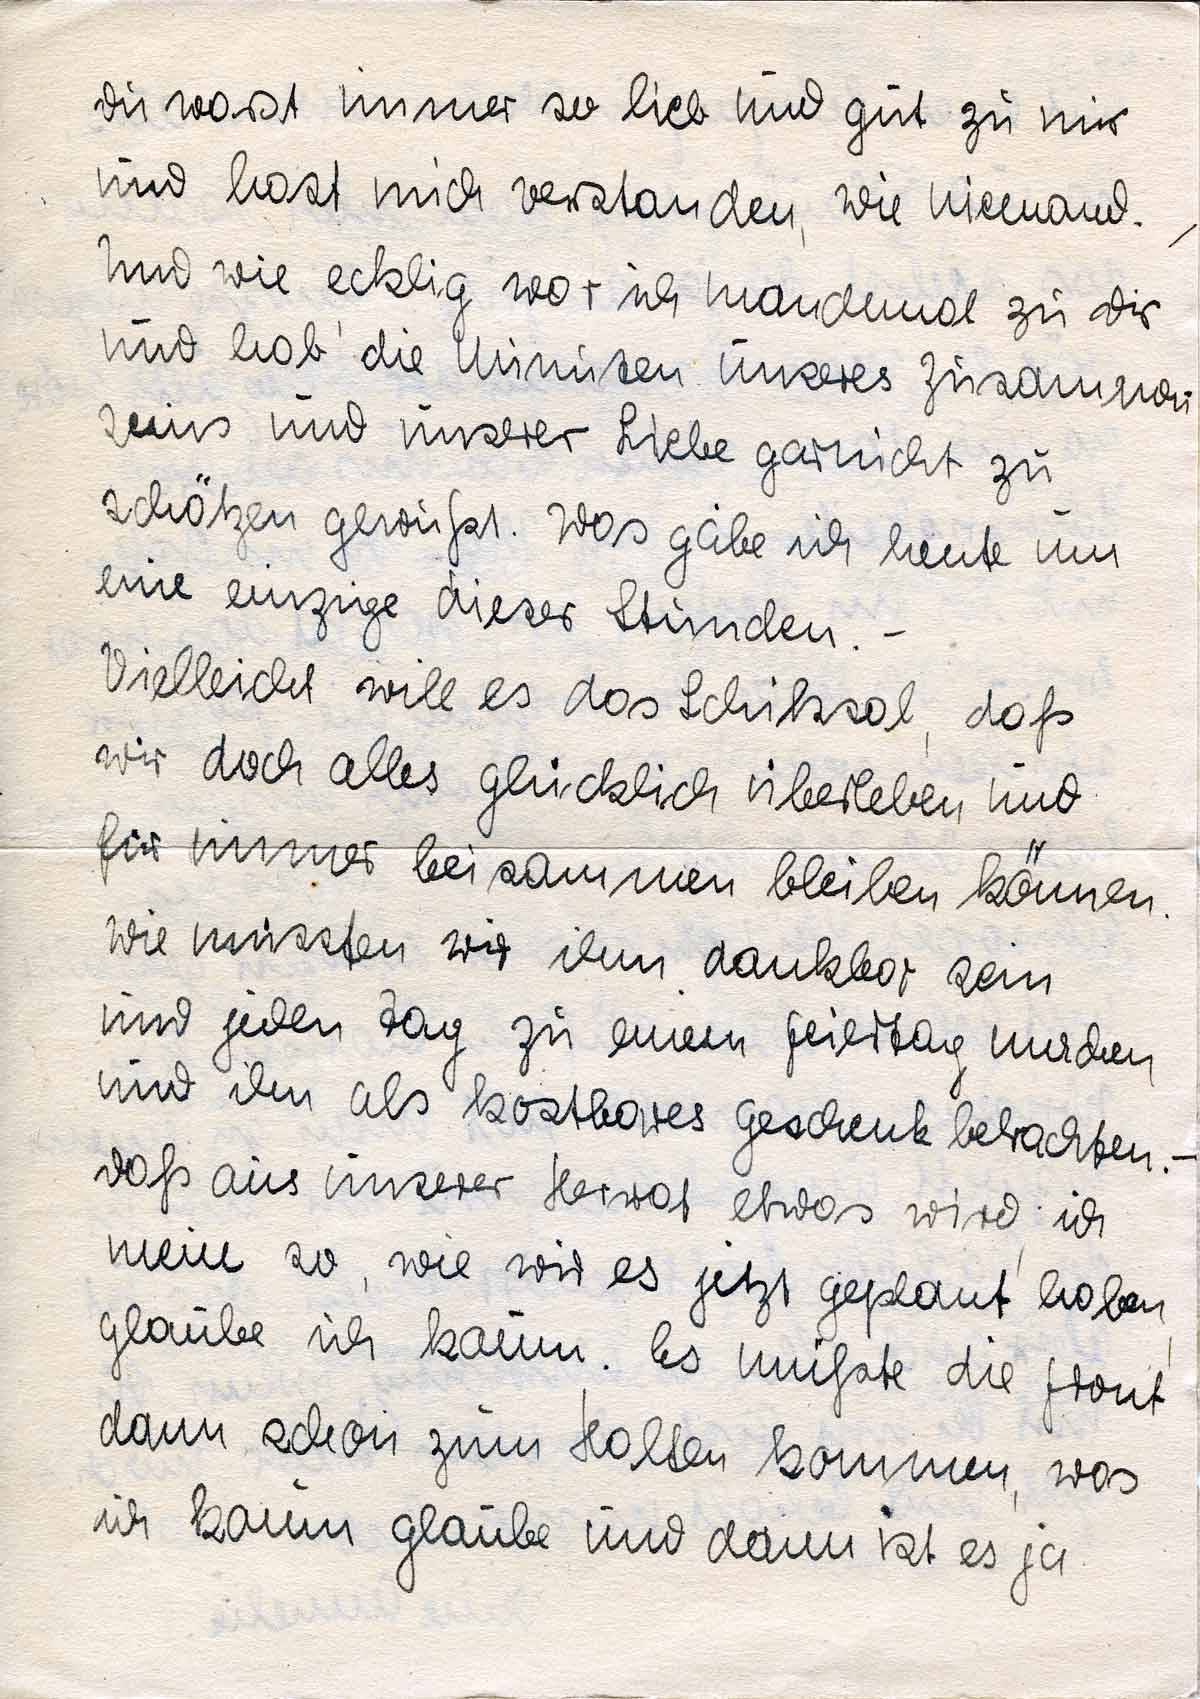 du warst immer so lieb und gut zu mir
und hast mich verstanden, wie niemand.
Und wie ecklig war ich manchmal zu dir
und hab' die Minuten unseres Zusammen
seins und unserer Liebe garnicht zu
schätzen gewußt. Was gäbe ich heute um
eine einzige dieser Stunden. –
Vielleicht will es das Schiksal, daß
wir doch alles glücklich überleben und
für immer beisammen bleiben können.
Wie müssten wir ihm dankbar sein
und jeden Tag zu einem Feiertag machen
und ihn als kostbares Geschenk betrachten. –
daß aus unserer Heirat etwas wird, ich
mein so, wie wir es jetzt geplant haben,
glaube ich kaum. Es müßte die Front
dann schon zum Halten kommen, was
ich kaum glaube und dann ist es ja